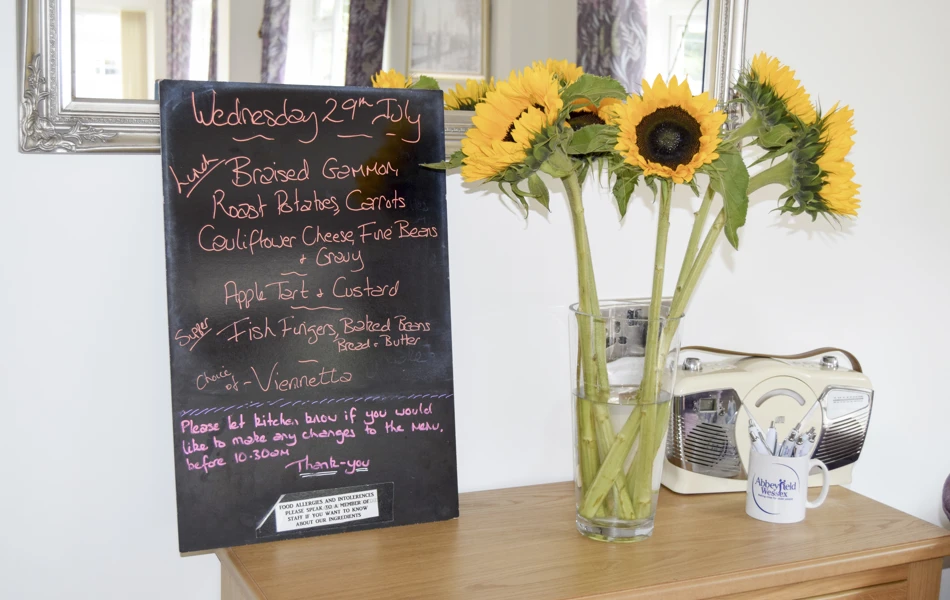 Wednesday 29th July
Lunch - Braised Gammon,
Roast Potatoes, Carrots
Cauliflower Cheese, Fine Beans
& Gravy
Apple Tart & Custard
Supper - Fish Fingers, Baked Beans
Bread & Butter
Choice of - Viennetta
Please let kitchen know if you would
like to make any changes to the menu,
before 10.30am
Thank-you
FOOD ALLERGIES AND INTOLERENCES
PLEASE SPEAK TO A MEMBER OF
STAFF IF YOU WANT TO KNOW
ABOUT OUR INGREDIENTS
Abbeyfield
Wessex